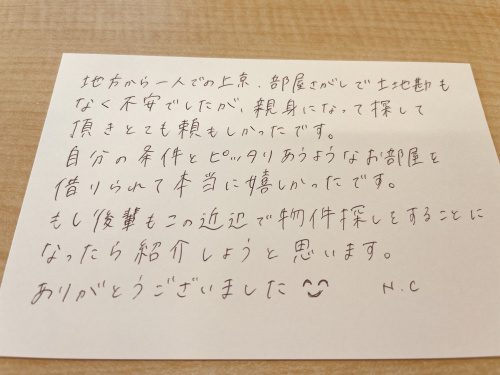 地方から一人での上京、部屋さがしで土地勘も
なく不安でしたが、親身になって探して
頂きとても頼もしかったです。
自分の条件とピッタリあうようなお部屋を
借りられて本当に嬉しかったです。
もし後輩もこの近辺で物件探しをすることに
なったら紹介しようと思います。
ありがとうございました
N.C